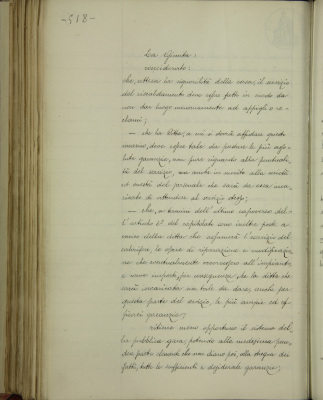 -518-
La Giunta:
considerato:
che, attesa la signorilità della cosa, il servizio
del riscaldamento deve essere fatto in modo da
non dar luogo menomamente ad appigli o re-
clami;
— che la Ditta, a cui si dovrà affidare questo
incarico, deve essere tale da prestare le più asso-
lute garanzie, non pure riguardo alla puntuali-
tà del servizio, ma anche in merito alla
ed onestà del personale che sarà da essa inca-
ricato di attendere al servizio stesso;
— che, ai termini dell'ultimo capoverso del-
l'articolo 6° del capitolato sono inoltre poste a
carico della ditta che assumerà l'esercizio del
calorifero, le opere di riparazione e modificazio-
ne che eventualmente occorressero all'impianto,
e viene imposto, per conseguenza, che la ditta che
sarà incaricata sia tale da dare, anche per
questa parte del servizio, le più ampie ed ef-
ficaci garanzie;
ritiene meno opportuno il sistema del-
la pubblica gara, potendo alla medesima pren-
der parte elementi che non diano poi, alla stregua dei
fatti, tutte le sufficienti e desiderate garanzie;